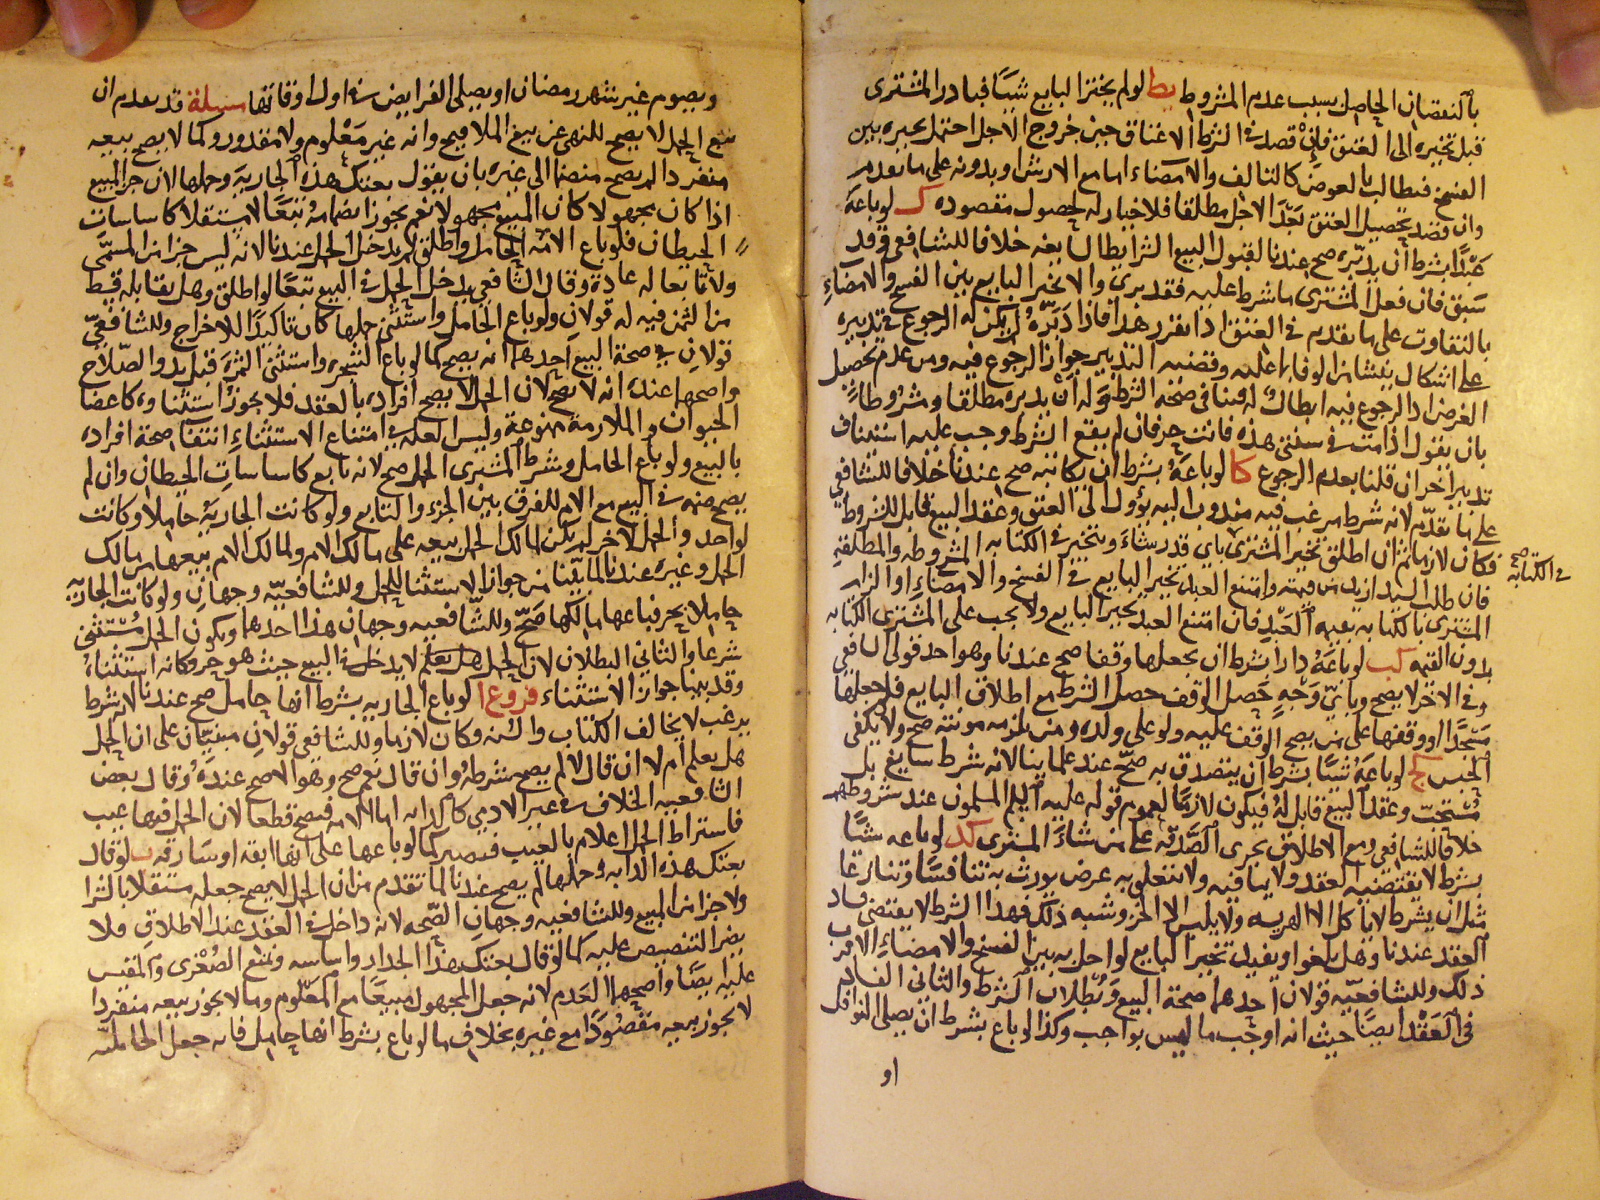 بالنقصان الحاصل بسبب عدم المشروط يط لو لم يختر البايع شيئا فبادر المشترى
قبل تخيره الى العتق فإن قصد في الشرط الاعتاق حين خروج الاجل احتمل تخيره بين
الفسخ فيطالب بالعوض كالتالف والامضاء اما مع الارش او بدونه على ما تقدم
وان قصد تحصيل العتق بعد الاجل مطلقا فلا خيار له لحصول مقصوده ك لو باعه
عبدا بشرط أن يدبره صح عندنا لقبول البيع الشرايط السايغه خلافا للشافعي وقد
سبق فان فعل المشترى ما شرط عليه فقد برئ والا تخير البايع بين الفسخ والامضاء
بالتفاوت على ما تقدم في العتق اذا تقرر هذا فاذا دبره لم يكن له الرجوع في تدبيره
على اشكال ينشا من الوفاء بما عليه وقضية التدبير جواز الرجوع فيه ومن عدم تحصيل
الغرض اذ الرجوع فيه ابطال له فينافي صحة الشرط وله أن يدبره مطلقا ومشروطا
بان يقول اذا مت في سنتي هذه فانت حر فان لم يقع الشرط وجب عليه استيناف
تدبير اخر ان قلنا بعدم الرجوع كا لو باعه بشرط ان يكاتبه صح عندنا خلافا للشافعي
على ما تقدم لانه شرط مرغب فيه مندوب اليه يؤول الى العتق وعقد البيع قابل للشروط
فكان لازما ثم ان اطلق تخير المشترى باي قدر شاء ويتخير في الكتابه المشروطه والمطلقة
في الكتابه صح
فان طلب السيد ازيد من قيمته وامتنع العبد تخير البايع في الفسخ والامضاء او الزام
المشترى بالكتابه بقيمة العبد فان امتنع العبد تخير البايع ولا يجب على المشترى الكتابه
بدون القيمه كب لو باعه دارا بشرط ان يجعلها وقفا صح عندنا وهو احد قولى الشافعي
وفي الاخر لا يصح وباي وجه حصل الوقف حصل الشرط مع اطلاق البايع فلو جعلها
مسجدا او وقفها على من يصح الوقف عليه ولو على ولده ومن يلزمه مونته صح ولا يكفى
الحبس كج لو باعه شيئا بشرط أن يتصدق به صح عند علماينا لانه شرط سايغ بل
مستحب وعقد البيع قابل له فيكون لازما لعموم قوله عليه السلم المسلمون عند شروطهم
خلافا للشافعي ومع الاطلاق يجزى الصدقه على من شاء المشترى كد لو باعه شيئا
بشرط لا يقتضيه العقد ولا ينافيه ولا يتعلق به غرض يورث به تنافسا وتنازعا
مثل ان يشرط لا ياكل الا الهريسه ولا يلبس الا الخز وشبه ذلك فهذا الشرط لا يقتضى فساد
العقد عندنا وهل يلغوا ويفيد تخير البايع لو اخل به بين الفسخ والامضاء الاقرب
ذلك وللشافعيه قولان احدهما صحة البيع وبطلان الشرط والثاني الفساد
في العقد ايضا حيث انه اوجب ما ليس بواجب وكذا لو باع بشرط ان يصلى النوافل
او
ويصوم غير شهر رمضان او يصلى الفرايض في اول اوقاتها مسئلة قد تقدم ان
بيع الحمل لا يصح للنهي عن بيع الملاقيح وانه غير معلوم ولا مقدور وكما لا يصح بيعه
منفردا لم يصح منضما الى غيره بان يقول بعتك هذه الجارية وحملها لان جزء المبيع
اذا كان مجهولا كان المبيع مجهولا نعم يجوز انضمامه تبعا لا مستقلا كاساسات
الحيطان فلو باع الامة الحامل واطلق لم يدخل الحمل عندنا لانه ليس جزا من المسمى
ولا تابعا له عادة وقال الشافعي يدخل الحمل في البيع تبعا لو اطلق وهل يقابله قسط
من الثمن فيه له قولان ولو باع الحامل واستثنى حملها كان تاكيدا للاخراج وللشافعي
قولان في صحة البيع احدهما انه يصح كما لو باع الشجره واستثنى الثمرة قبل بدو الصلاح
واصحهما عنده انه لا يصح لان الحمل لا يصح افراده بالعقد فلا يجوز استثناوه كاعضا
الحيوان والملازمة ممنوعة وليس العله في امتناع الاستثناء انتفا صحة افراده
بالبيع ولو باع الحامل وشرط المشترى الحمل صح لانه تابع كاساسات الحيطان وان لم
يصح ضمه في البيع مع الام للفرق بين الجزء والتابع ولو كانت الجارية حاملا وكانت
لواحد والحمل لاخر لم يكن لمالك الحمل بيعه على مالك الام ولمالك الام بيعها من مالك
الحمل وغيره عندنا لما بينا من جواز الاستثنا للحمل وللشافعيه وجهان ولو كانت الجارية
حاملا بحر فباعها مالكها صح وللشافعيه وجهان هذا احدهما ويكون الحمل مستثنى
شرعا والثاني البطلان لان الحمل لا يدخل في البيع حيث هو حر وكانه استثناه
وقد بينا جواز الاستثناء فروع ا لو باع الجاريه بشرط انها حامل صح عندنا لانه شرط
يرغب لا يخالف الكتاب والسنه وكان لازما وللشافعي قولان مبنيان على ان الحمل
هل يعلم أم لا ان قال لا لم يصح شرطه وان قال نعم صح وهو الاصح عنده وقال بعض
الشافعيه الخلاف في غير الادمي كالدابه اما الامه فيصح قطعا لان الحمل فيها عيب
فاشتراط الحمل اعلام بالعيب فيصير كما لو باعها على انها ابقة او سارقه ب لو قال
بعتك هذه الدابه وحملها لم يصح عندنا لما تقدم من ان الحمل لا يصح جعله مستقلا بالشرا
ولا جزا من المبيع وللشافعيه وجهان الصحه لانه داخل في العقد عند الاطلاق فلا
يضر التنصيص عليه كما لو قال بعتك هذا الجدار واساسه ونمنع الصغرى والمقيس
عليه ايضا واصحهما العدم لانه جعل المجهول مبيعا مع المعلوم وما لا يجوز بيعه منفردا
لا يجوز بيعه مقصودا مع غيره بخلاف ما لو باع بشرط انها حامل فانه جعل الحاملية